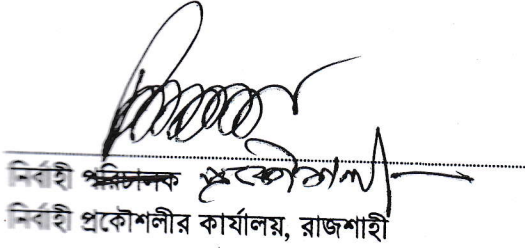 নির্বাহী পরিচালক প্রকৌশলী
নির্বাহী প্রকৌশলীর কার্যালয়, রাজশাহী